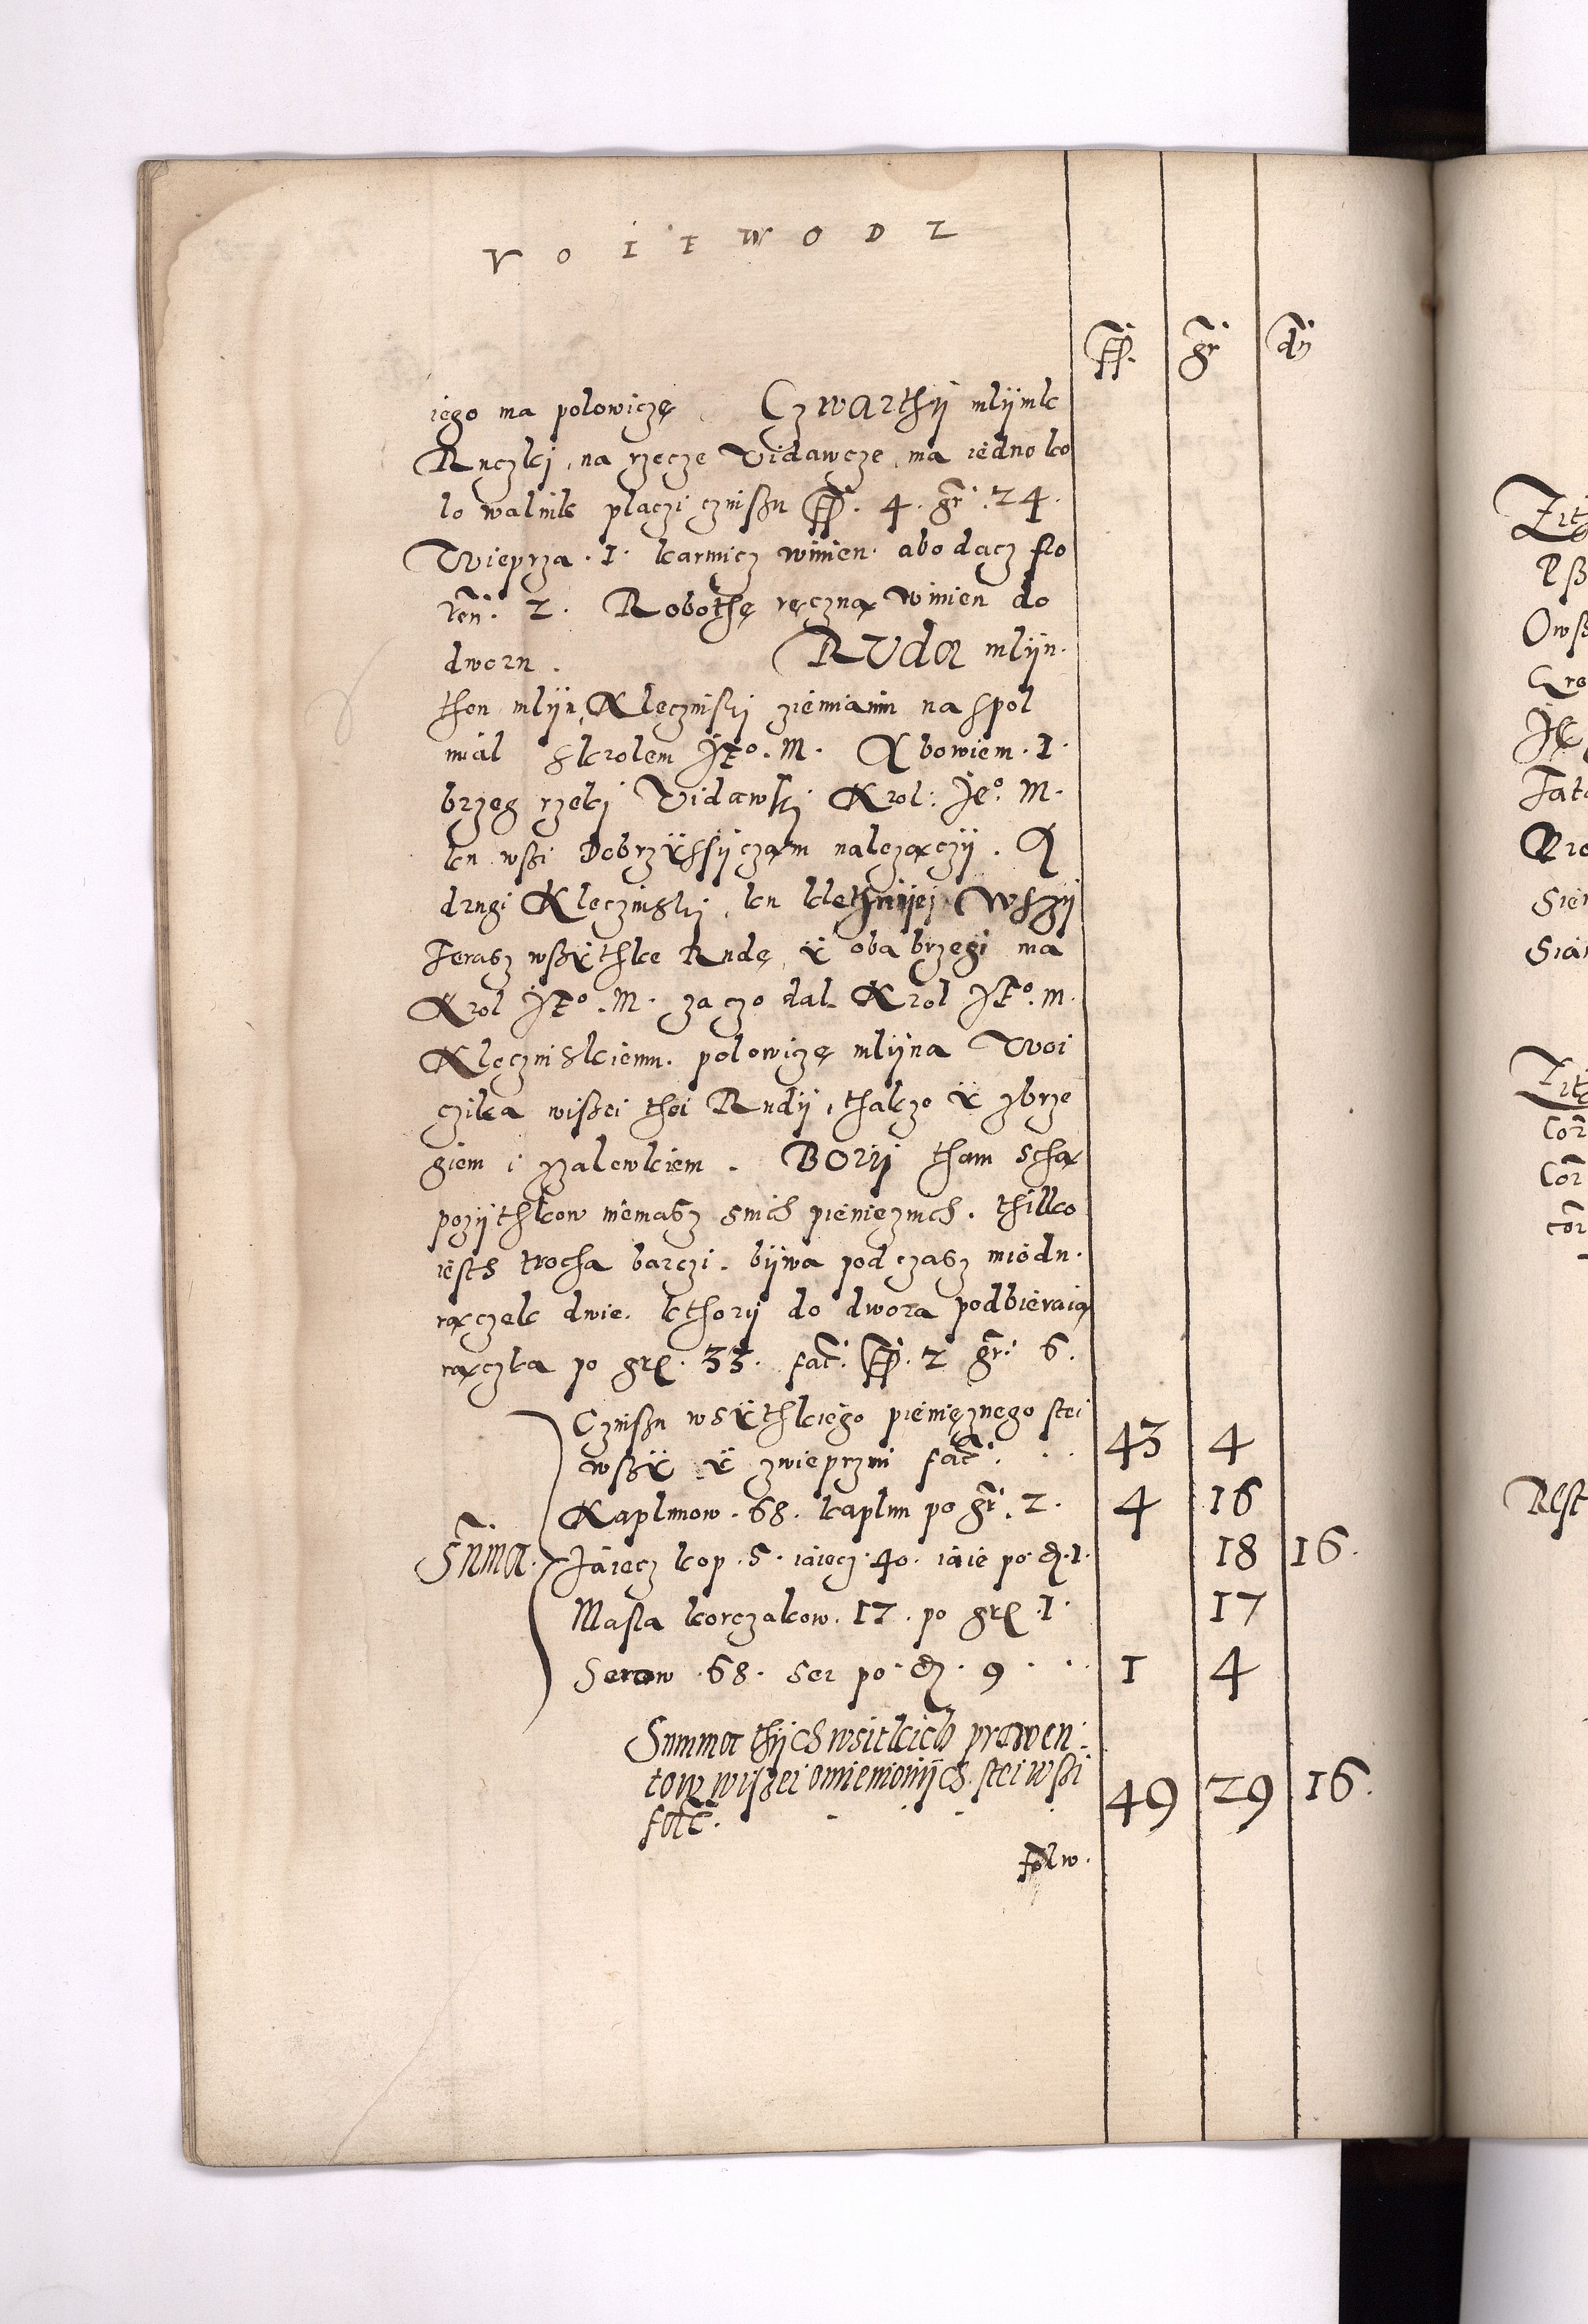 V O I E W O D Z
ff. gr dn
iego ma polowiczę. Czwarthÿ mlÿnik
Ruczki, na rzecze Vidawcze, ma iedno ko
lo walnik placzi czinßu ff. 4. gr. 24.
Wieprza. I. karmicz winien. abo dacz flo
ren. 2. Robothę ręczną winien do
dworu. RVda mlÿn.
then mlÿn, Kleczinski ziemianin na spol
mial skrolem JEo. M. Abowiem. I.
brzeg rzeki Vidawki Krol: Jeo. M.
ku wßi Dobrzÿssÿczam nalezączÿ. A
drugi Kleczinski, ku klethnijej Wszÿ
Terasz wßÿthke Rudę, ÿ oba brzegi ma
Krol JEo. M. za czo dal Krol JEo. M.
Kleczinskiemu. polowiczę mlÿna Woi
czika wißei thei Rudÿ, thakze ÿ zbrze
giem i zzalewkiem. BOrÿ tham schą
pozÿthkow niemasz snich pieniezinch. thilko
iesth trocha barczi. bÿwa pod czasz miodu.
rączek dwie. kthorÿ do dwora podbieraią
rączka po gro. 33. fac. ff. 2 gr. 6.
Czinßu wsÿthkiego pienięznego stei
wßÿ ÿ zwieprzmi fac. 43 4
Kaplunow. 68. kaplun po gr. 2. 4 16
Suma. Jaiecz kop. 5. iaiecz. 40. iaie po d. 1. 18 16.
Masla korczakow. 17. po gro. I. 17
Serow. 68. ser po. d. 9 1 4
Summa thÿch wsitkich prowen:
tow wißei omienionÿch. stei wßi
facc. 49 29 16.
folw.